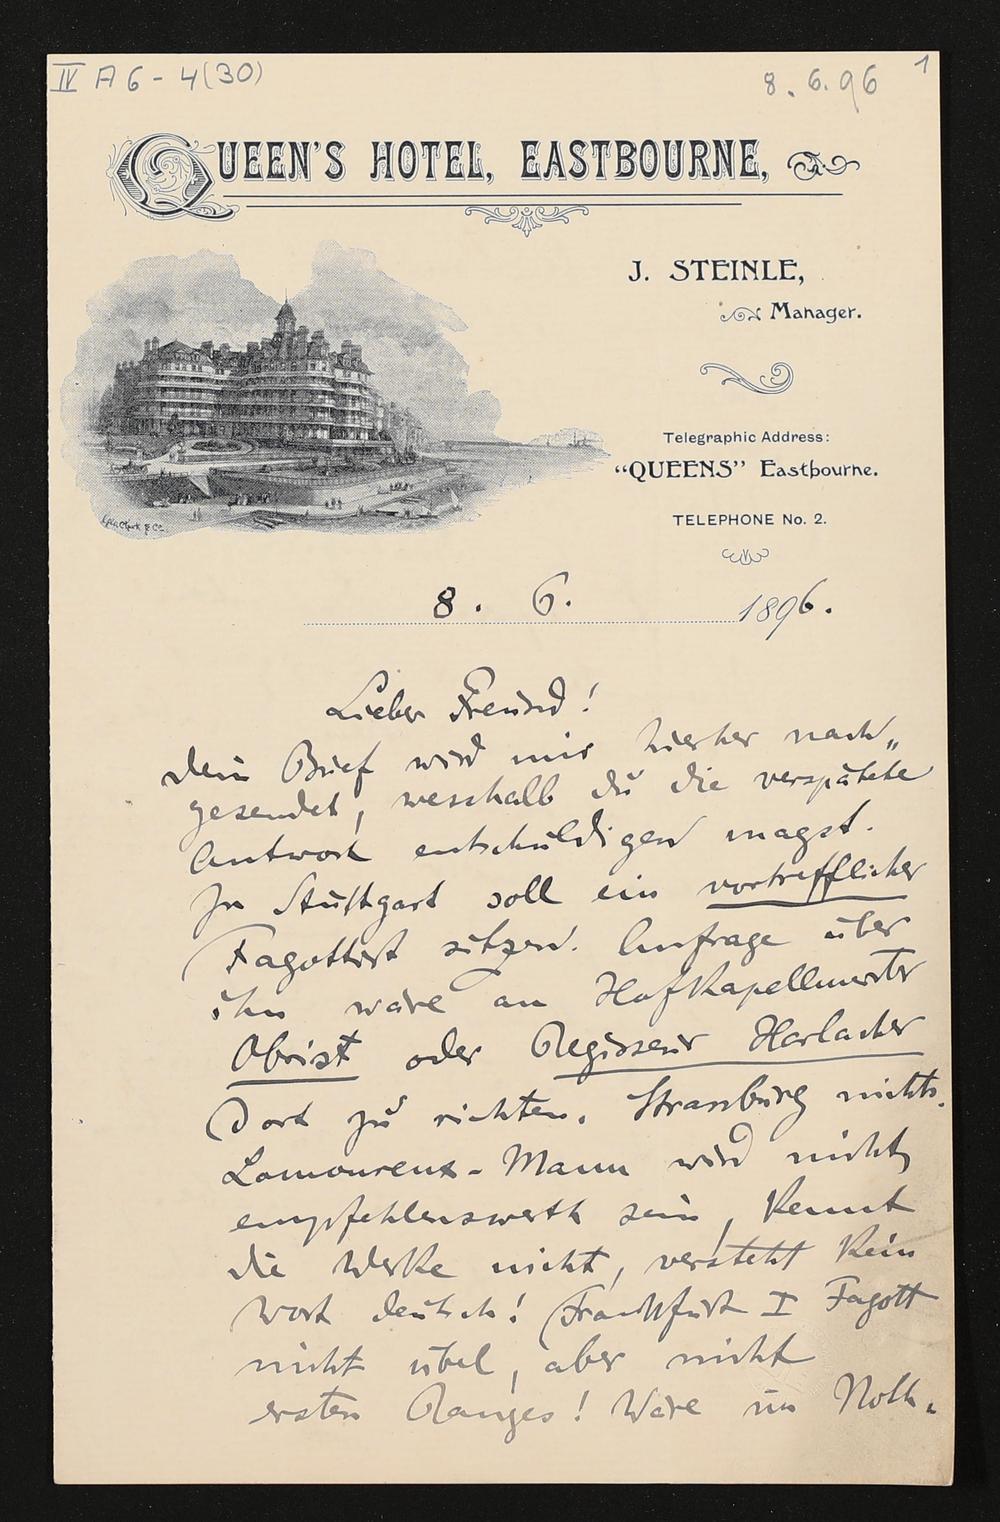 IV A 6 - 4 (30)
8. 6. 96
1
QUEEN'S HOTEL, EASTBOURNE,
J. STEINLE,
Manager.
Telegraphic Address:
“QUEENS” Eastbourne.
TELEPHONE No. 2.
8. 6. 1896.
Lieber Freund!
Dein Brief wird mir hierher nach„
gesendet, weschalb du die verspätete
Antwort entschuldigen magst.
In Stuttgart soll ein vortrefflicher
Fagottist sitzen. Anfrage über
ihn wäre an Hofkapellmeister
Obrist oder Regisseur Harlacher
Dort zu richten. Strassburg nichts.
Lamoureux-Mann wird nicht
empfehlenswerth sein, kennt
die Werke nicht, versteht kein
Wort deutsch! Frankfurt I Fagott
nicht übel, aber nicht
ersten Ranges! Wäre im Noth-